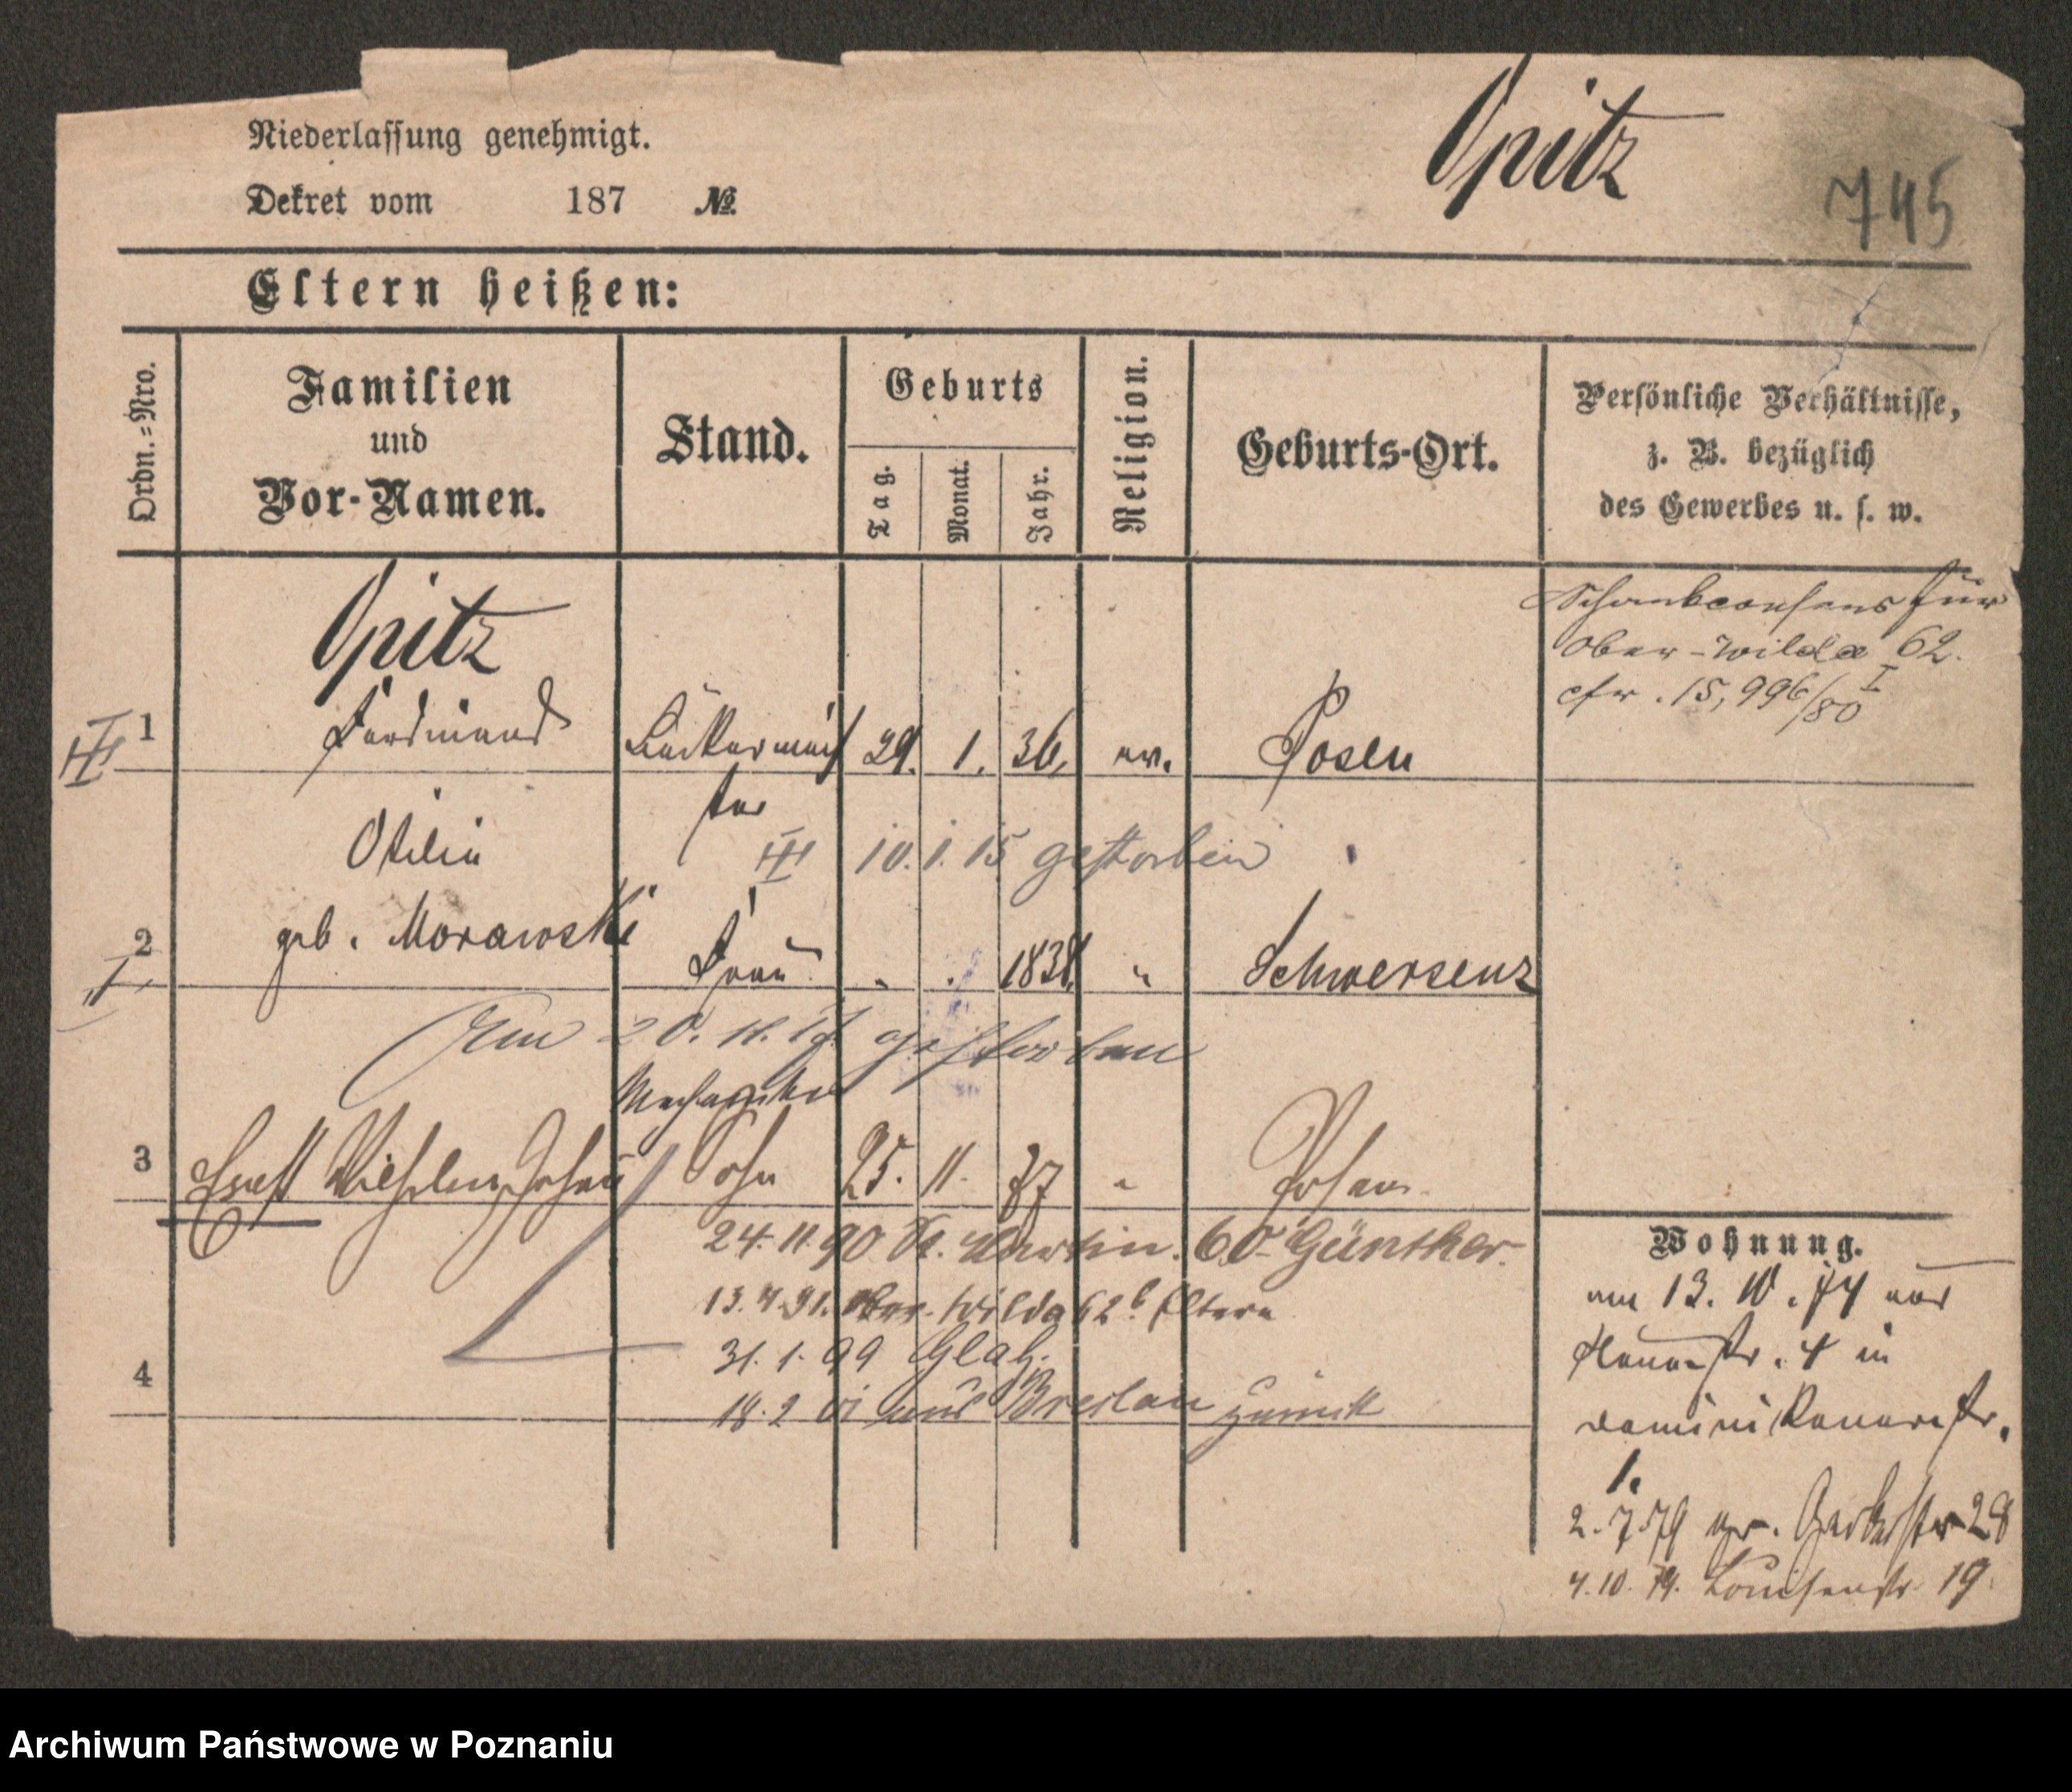 Niederlassung genehmigt.
Opitz
745
Dekret vom 187 №
Eltern heißen:
Ordn.=Nro.
Familien
und
Vor-Namen.
Stand.
Geburts
Tag.
Monat.
Jahr.
Religion.
Geburts-Ort.
Persönliche Verhältnisse,
z. B. bezüglich
des Gewerbes u. s. w.
Opitz
Schankconsens für
Ober-Wilda 62.
cfr. 15,996/80 I
III 1 Ferdinand 29. 1. 36. ev. Posen
Otilie
III 10. 1. 15 gestorben
geb. Morawski
2 Frau " " 1838. " Schwersenz
I
Am 20. 11. gestorben
Mechaniker
3 Ernst Wilhelm Johann Sohn 25. 11. " Posen
24. 11. 90 St. Martin. 60 Günther.
13. 4. 91. Ober-Wilda 62 b Eltern
31. 1. 99 Glatz.
4
18. 2 01 aus Breslau zurück
Wohnung.
am 13. 10. 74 aus
4 in
Dominikanerstr.
1.
2. 7. 79 gr. Gerberstr 28
4. 10. 79. Louisenstr. 19.
Archiwum Państwowe w Poznaniu